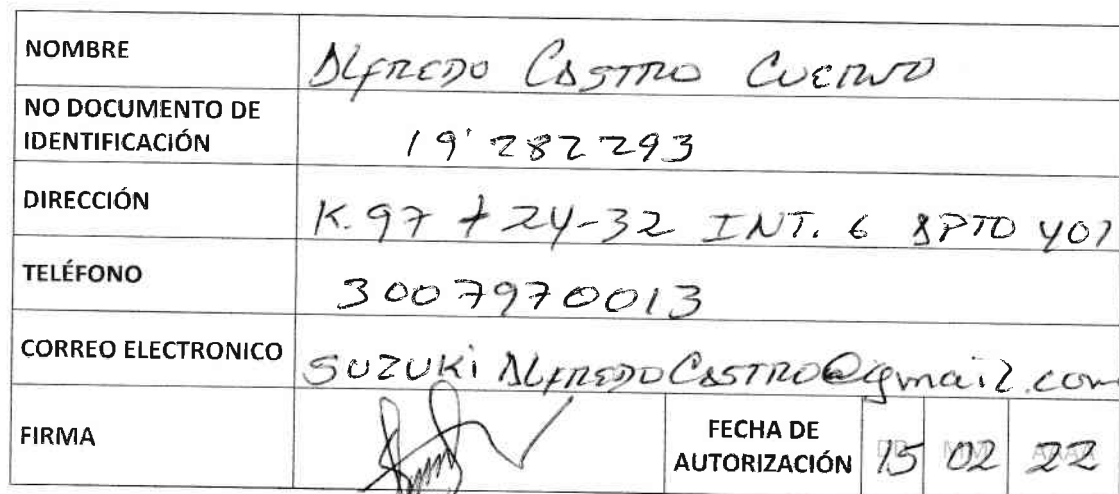 NOMBRE ALFREDO CASTRO CUERVO
NO DOCUMENTO DE
IDENTIFICACIÓN 19'282293
DIRECCIÓN K. 97 # 24-32 INT. 6 APTO 407
TELÉFONO 3007970013
CORREO ELECTRONICO SUZUKiALFREDOCASTRO@gmail.com
FIRMA FECHA DE
AUTORIZACIÓN 15 02 22